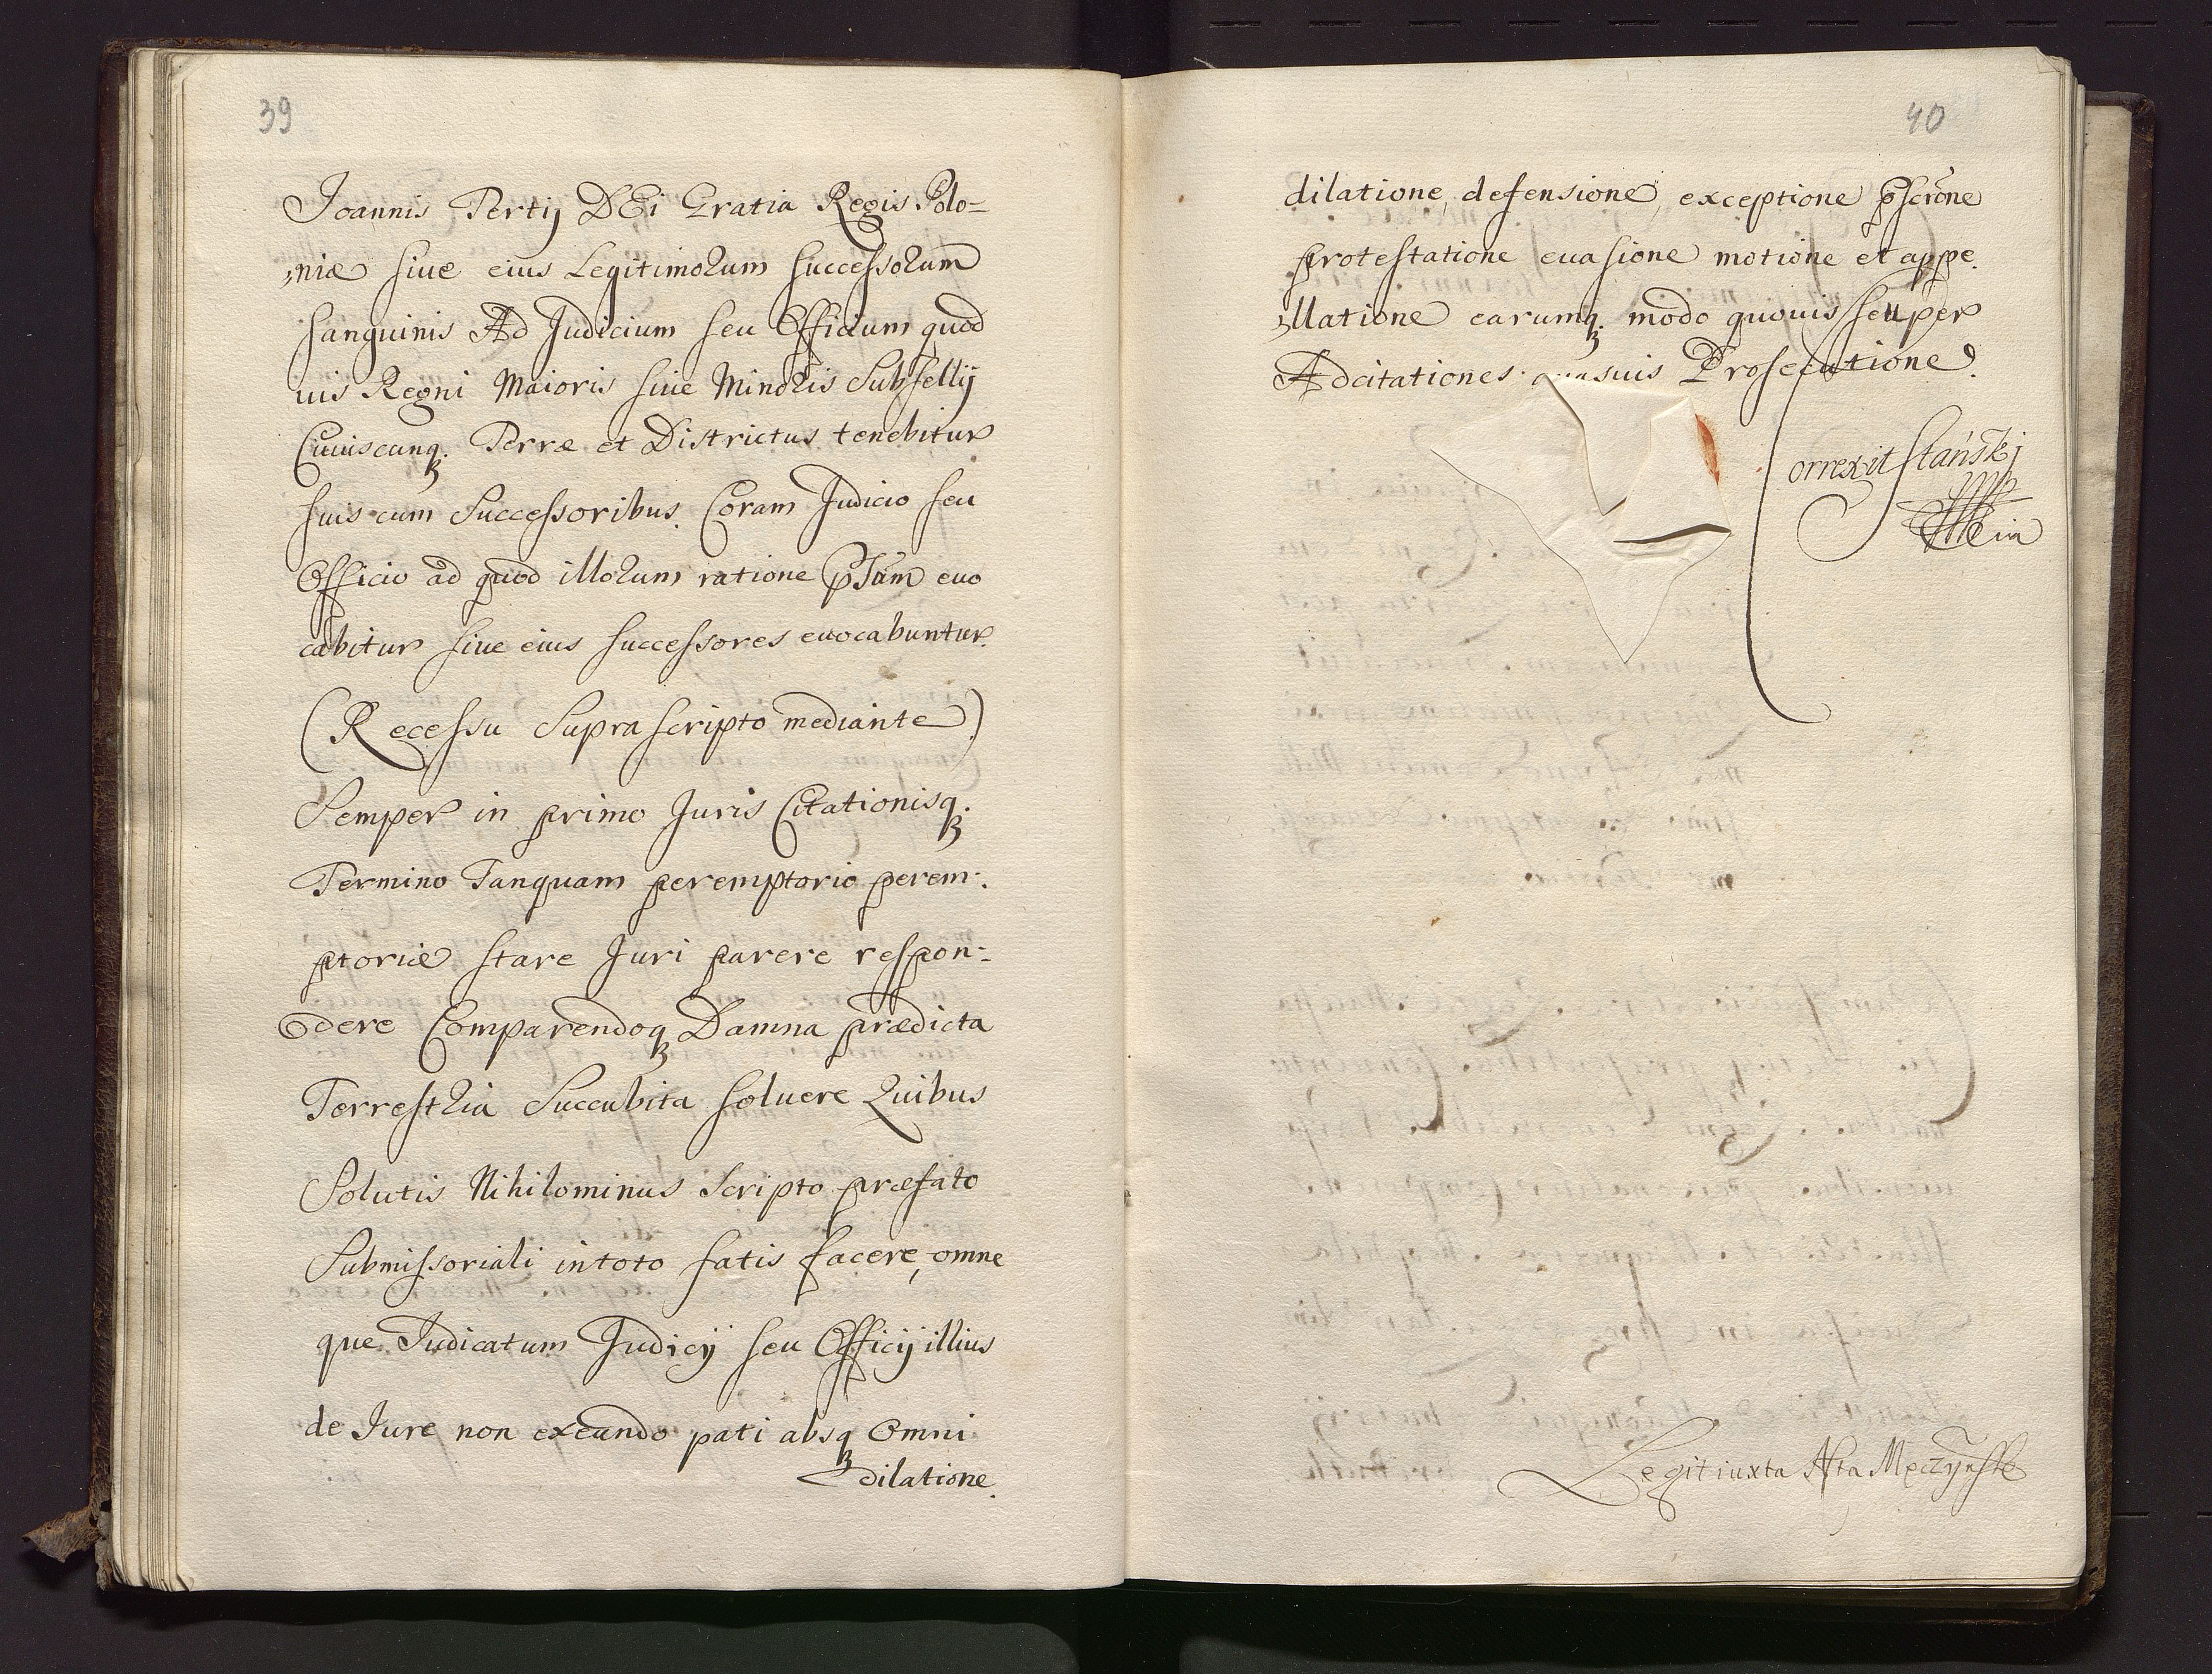 39
Joannis Tertij DEi Gratia Regis Polo=
niæ siue eius Legitimorum successorum
sanguinis Ad Judicium seu Officium quod
uis Regni Maioris siue Minoris Subsellij
Cuiuscunq. Terræ et Districtus tenebitur
suis cum Successoribus. Coram Judicio seu
Officio ad quod illorum ratione euo
cabitur siue eius successores euocabuntur.
(Recessu Supra scripto mediante)
Semper in primo Juris Citationisq.
Termino Tanquam peremptorio perem:
ptorie stare Juri parere respon:
dere Comparendoq Damna prædicta
Terrestria Succubita soluere Quibus
Solutis Nihilominus Scripto præfato
Submissoriali in toto satis facere, omne
que Judicatum Judicij seu Officij illius
de Jure non exeundo pati absq Omni
dilatione.
40
dilatione, defensione, exceptione
protestatione euasione motione et appe.
llatione earumq. modo quouis seu per
Adcitationes Prosecutione.
Correxit Stański
Legit iuxta Acta Męczyński